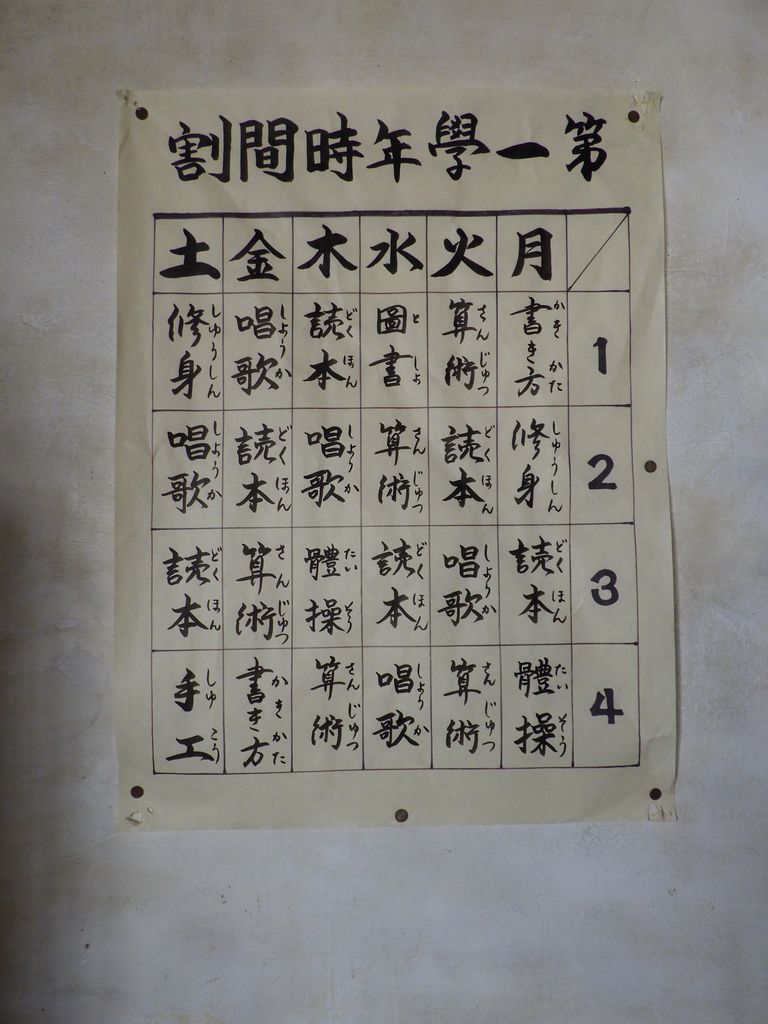 第一學年時間割
月 火 水 木 金 土
1 書き方 かきかた 算術 さんじゅつ 圖書 としょ 読本 どくほん 唱歌 しようか 修身 しゆうしん
2 修身 しゅうしん 読本 どくほん 算術 さんじゅつ 唱歌 しようか 読本 どくほん 唱歌 しようか
3 読本 どくほん 唱歌 しようか 読本 どくほん 體操 たいそう 算術 さんじゅつ 読本 どくほん
4 體操 たいそう 算術 さんじゅつ 唱歌 しようか 算術 さんじゅつ 書き方 かきかた 手工 しゅこう